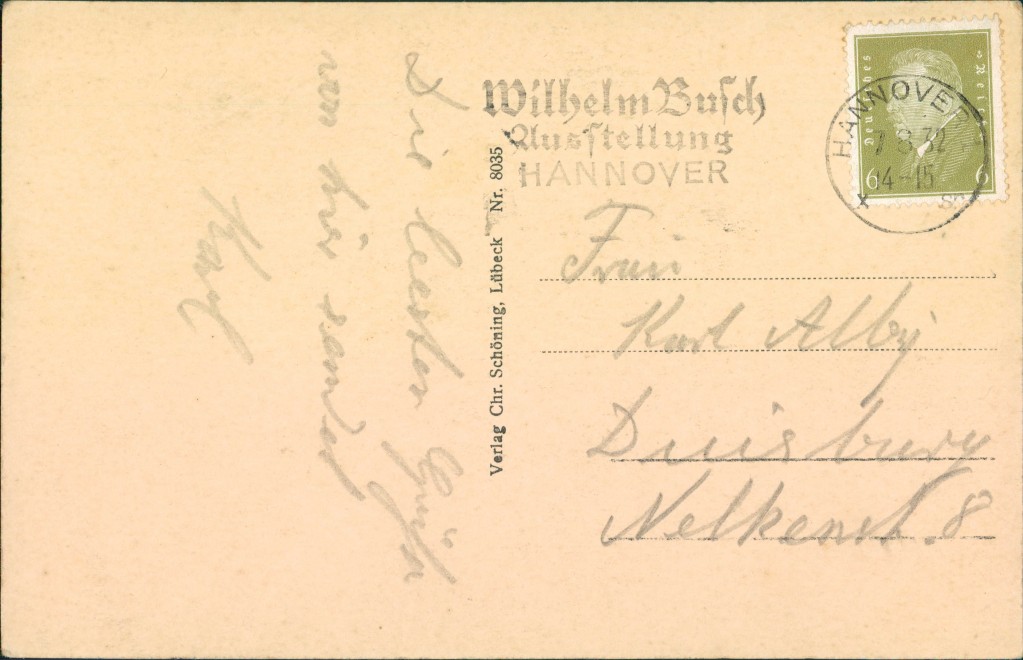 Die besten Grüße
von hier sendet
Karl
Verlag Chr. Schöning, Lübeck Nr. 8035
Wilhelm Busch
Ausstellung
HANNOVER
Deutsches Reich
6 6
HANNOVER
7 8.32
14-15
Frau
Karl Alby
Duisburg
Nelkenst. 8